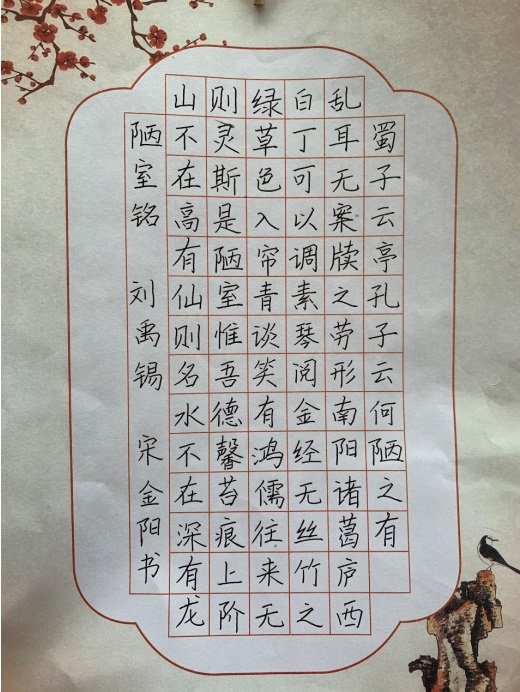 陋室铭 刘禹锡 宋金阳书
山不在高有仙则名水不在深有龙
则灵斯是陋室惟吾德馨苔痕上阶
绿草色入帘青谈笑有鸿儒往来无
白丁可以调素琴阅金经无丝竹之
乱耳无案牍之劳形南阳诸葛庐西
蜀子云亭孔子云何陋之有